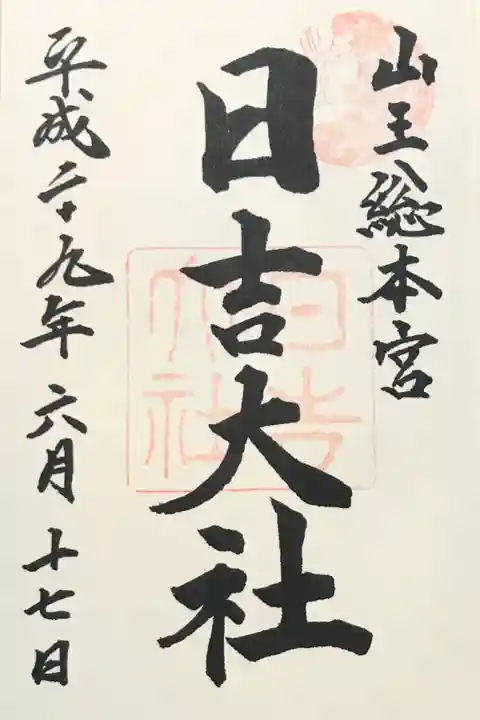 山王総本宮
日吉大社
平成二十九年六月十七日
日吉
大社